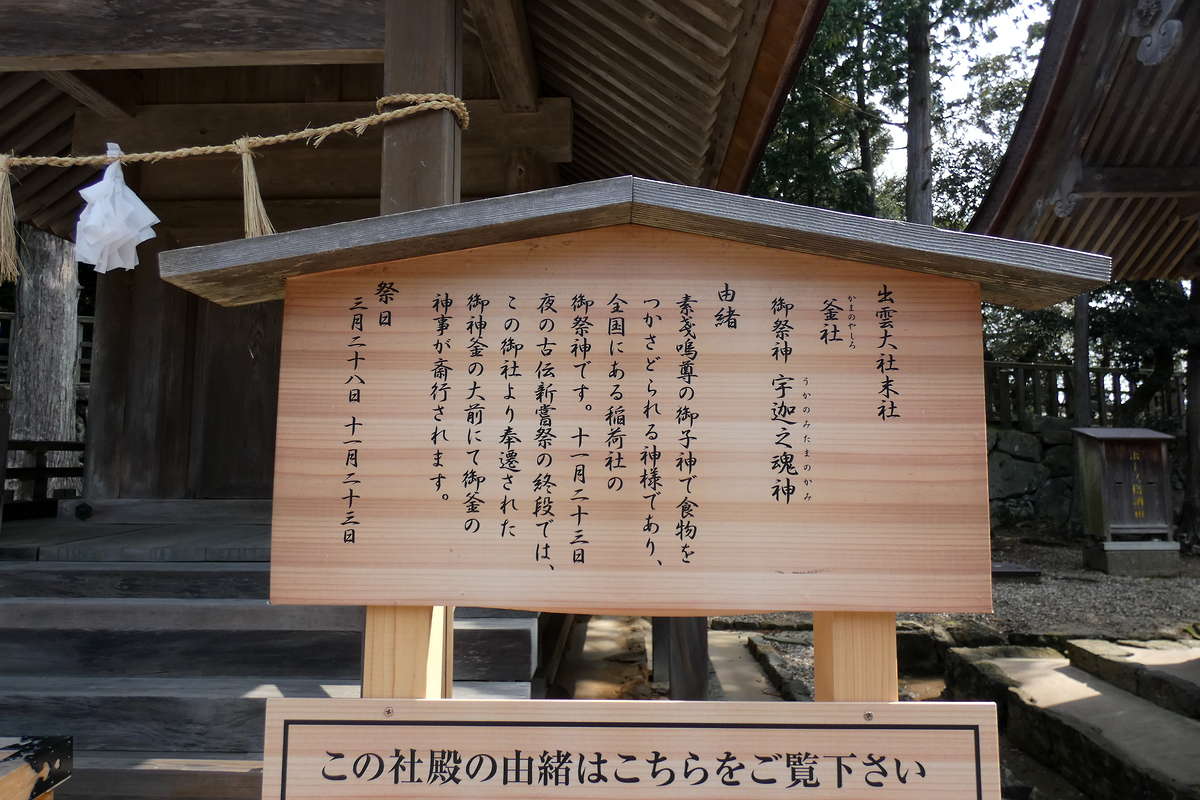 出雲大社末社
かまのやしろ
釜社
うかのみたまのかみ
御祭神 宇迦之魂神
由緒
素戔嗚尊の御子神で食物を
つかさどられる神様であり、
全国にある稲荷社の
御祭神です。十一月二十三日
夜の古伝新嘗祭の終段では、
この御社より奉遷された
御神釜の大前にて御釜の
神事が斎行されます。
祭日
三月二十八日 十一月二十三日
この社殿の由緒はこちらをご覧下さい